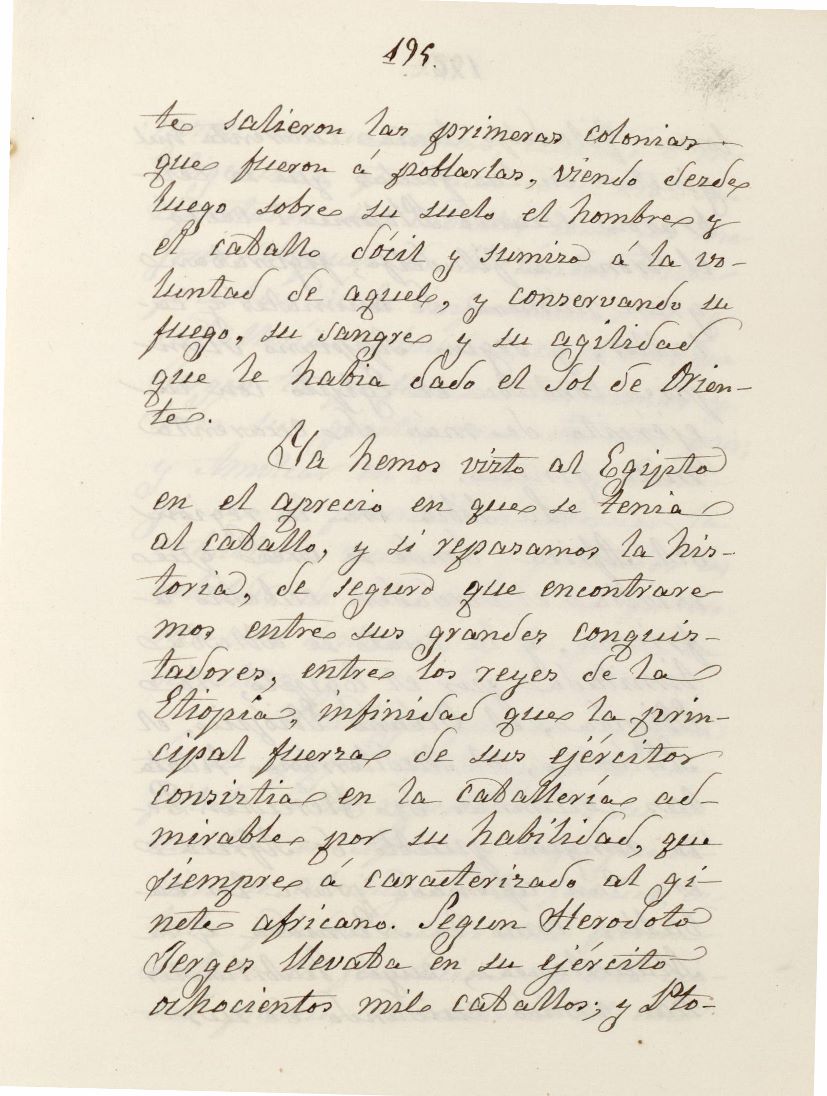 195.
te salieron las primeras colonias
que fueron á poblarlas, viendo desde
luego sobre su suelo el hombre y
el caballo dócil y sumiso á la vo-
luntad de aquel, y conservando su
fuego, su sangre y su agilidad
que le habia dado el Sol de Orien-
te.
Ya hemos visto al Egipto
en el aprecio en que se tenia
al caballo, y si repasamos la his-
toria, de seguro que encontrare-
mos entre sus grandes conquis-
tadores, entre los reyes de la
Etiopía, infinidad que la prin-
cipal fuerza de sus ejércitos
consistia en la caballería ad-
mirable por su habilidad, que
siempre á caracterizado al gi-
nete africano. Segun Herodoto
Jerges llevaba en su ejército
ochocientos mil caballos; y Pto-